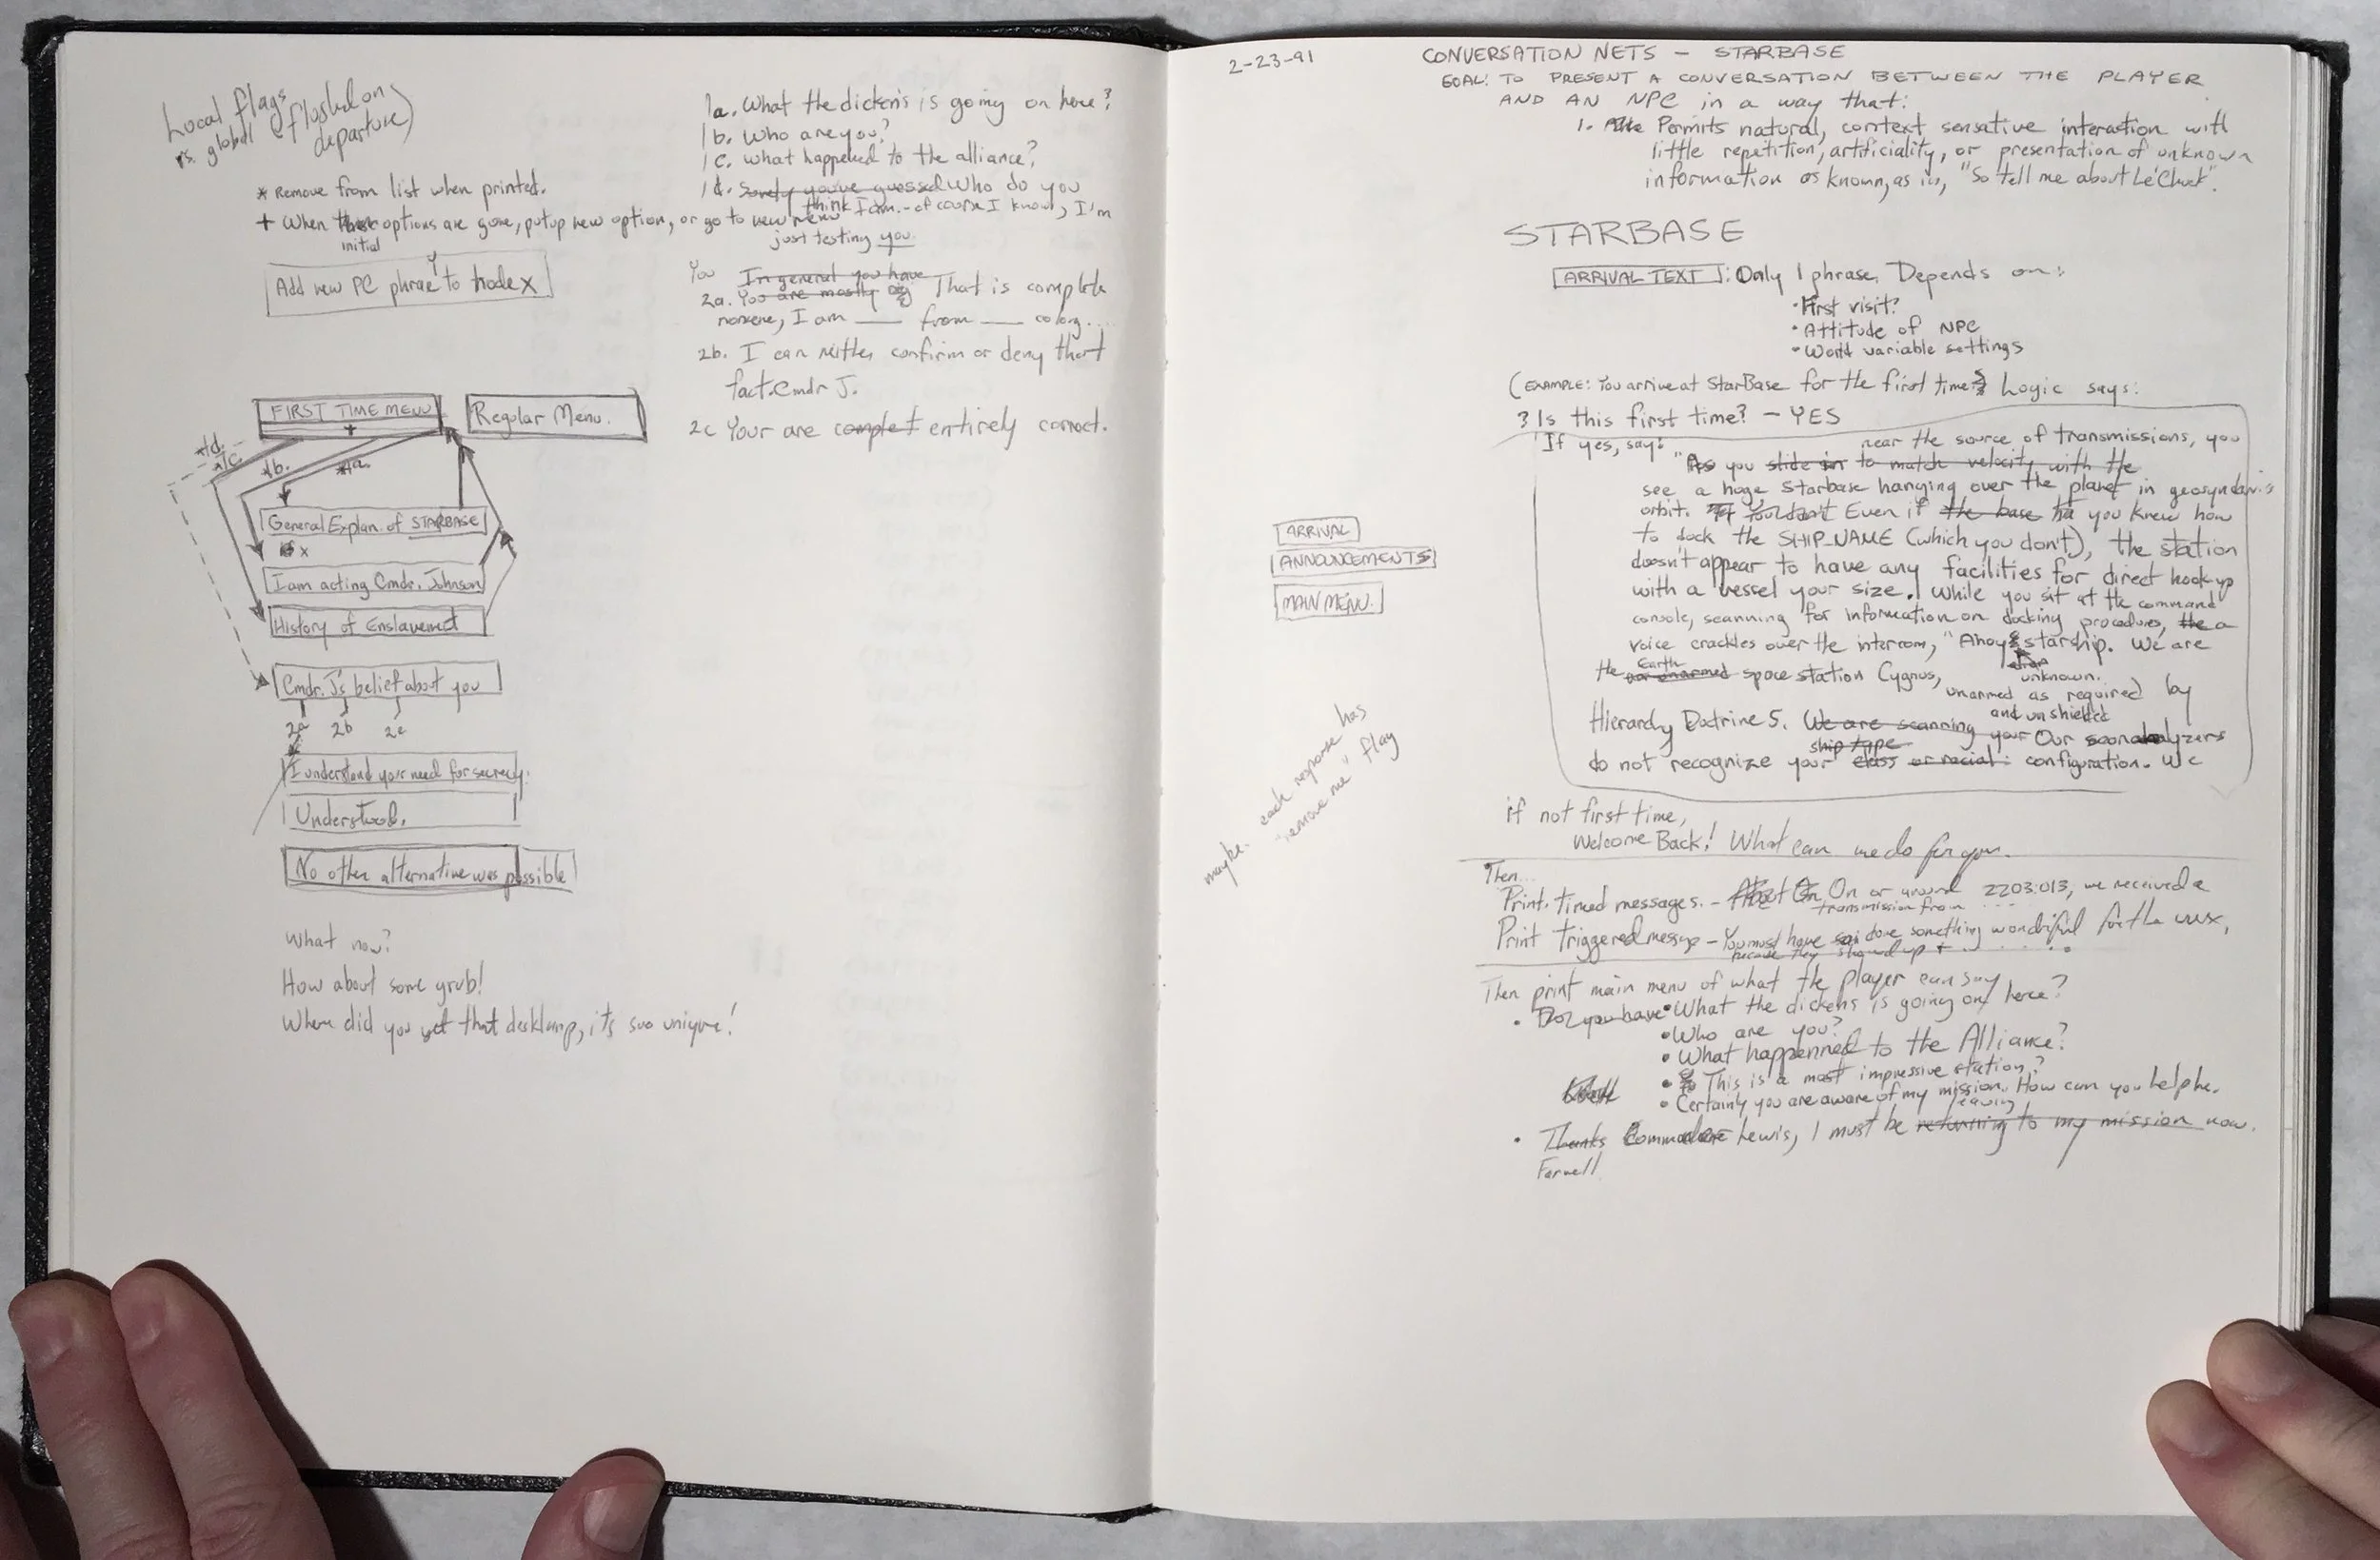 Local flags (flushed on
vs. global departure)
* Remove from list when printed.
+ When these options are gone, put up new option, or go to new menu
initial
Add new PC phrase Y to node X
FIRST TIME MENU
+
Regular Menu.
*1d.
*1c.
*1b.
*1a.
General Explan. of STARBASE
I am acting Cmdr. Johnson
History of Enslavement
Cmdr. J's belief about you
2a 2b 2c
I understand your need for secrecy.
Understood.
No other alternative was possible
What now?
How about some grub!
Where did you get that desklamp, it's soo unique!
1a. What the dickens is going on here?
1b. Who are you?
1c. What happened to the alliance?
1d. Surely you've guessed Who do you
think I am. - of course I know, I'm
just testing you.
You In general you have
2a. You are mostly That is complete
nonsense, I am ___ from ___ colony....
2b. I can neither confirm or deny that
fact. Cmdr J.
2c Your are complet entirely correct.
2-23-91
CONVERSATION NETS - STARBASE
GOAL: TO PRESENT A CONVERSATION BETWEEN THE PLAYER
AND AN NPC in a way that:
1. Permits natural, context sensative interaction with
little repetition, artificiality, or presentation of unknown
information as known, as in, "So tell me about Le'Chuck".
STARBASE
ARRIVAL TEXT: Only 1 phrase. Depends on:
• First visit?
• Attitude of NPC
• World variable settings
(EXAMPLE: You arrive at StarBase for the first time. Logic says:
? Is this first time? - YES
If yes, say: near the source of transmissions, you
"As you slide in to match velocity with the
see a huge starbase hanging over the planet in
orbit. Even if the base ha you knew how
to dock the SHIP_NAME (which you don't), the station
doesn't appear to have any facilities for direct hookup
with a vessel your size. While you sit at the command
console, scanning for information on docking procedures, the a
voice crackles over the intercom, "Ahoy starship. We are
unknown.
the Earth our unarmed space station Cygnus,
unarmed as required by
and unshielded
Hierarchy Doctrine 5. We are scanning your Our
ship type
do not recognize your class or racial configuration. We
ARRIVAL
ANNOUNCEMENTS
MAIN MENU.
maybe. each response has
"remove me" flag
if not first time,
Welcome Back! What can we do for you.
Then...
Print timed messages. - About On On or around 2203.013, we received a
transmission from ...
Print triggered message - You must have done something wonderful for the xxx,
because they showed up + . . . . .
Then print main menu of what the player can say
• Do you have • What the dickens is going on here?
• Who are you?
• What happenned to the Alliance?
• This is a most impressive station?
• Certainly you are aware of my mission. How can you help me.
leaving
• Thanks Commodore Lewis, I must be returning to my mission now.
Farwell